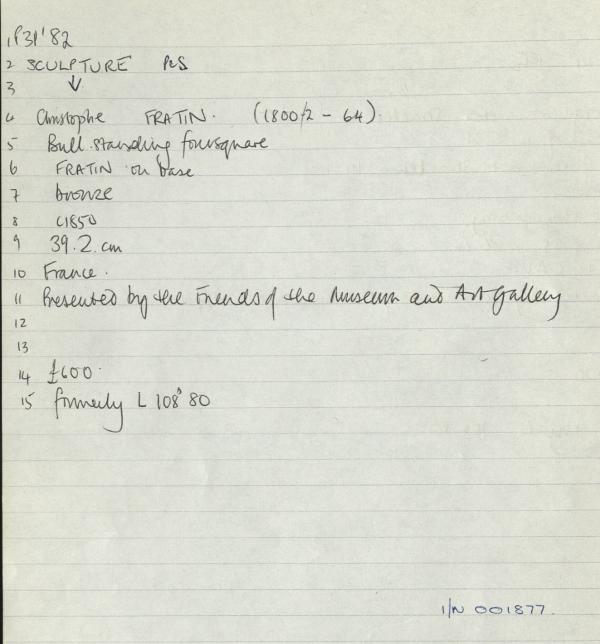 1 P31'82
2 SCULPTURE P&S
3 ↓
4 Christophe FRATIN. (1800/2 - 64)
5 Bull standing foursquare
6 FRATIN on base
7 bronze
8 c1850
9 39.2 cm
10 France.
11 Presented by the Friends of the Museum and Art Gallery
12
13
14 £600.
15 formerly L 108'80
I/N 001877.